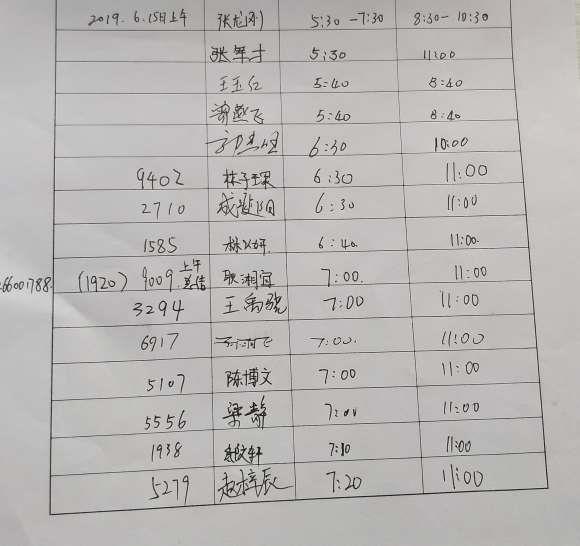 2019. 6.15日上午 张龙刚 5:30 - 7:30 8:30 - 10:30
张军才 5:30 11:00
王玉红 5:40 8:40
燕飞 5:40 8:40
6:30 10:00
9402 林子琪 6:30 11:00
2710 6:30 11:00
1585 6:40. 11:00.
66001788. (1920) 9009. 上午 耿湘宜 7:00. 11:00
3294 王禹骁 7:00 11:00
6917 7:00. 11:00
5107 陈博文 7:00 11:00
5556 梁静 7:00 11:00
1938 轩 7:10 11:00
5279 赵梓辰 7:20 11:00